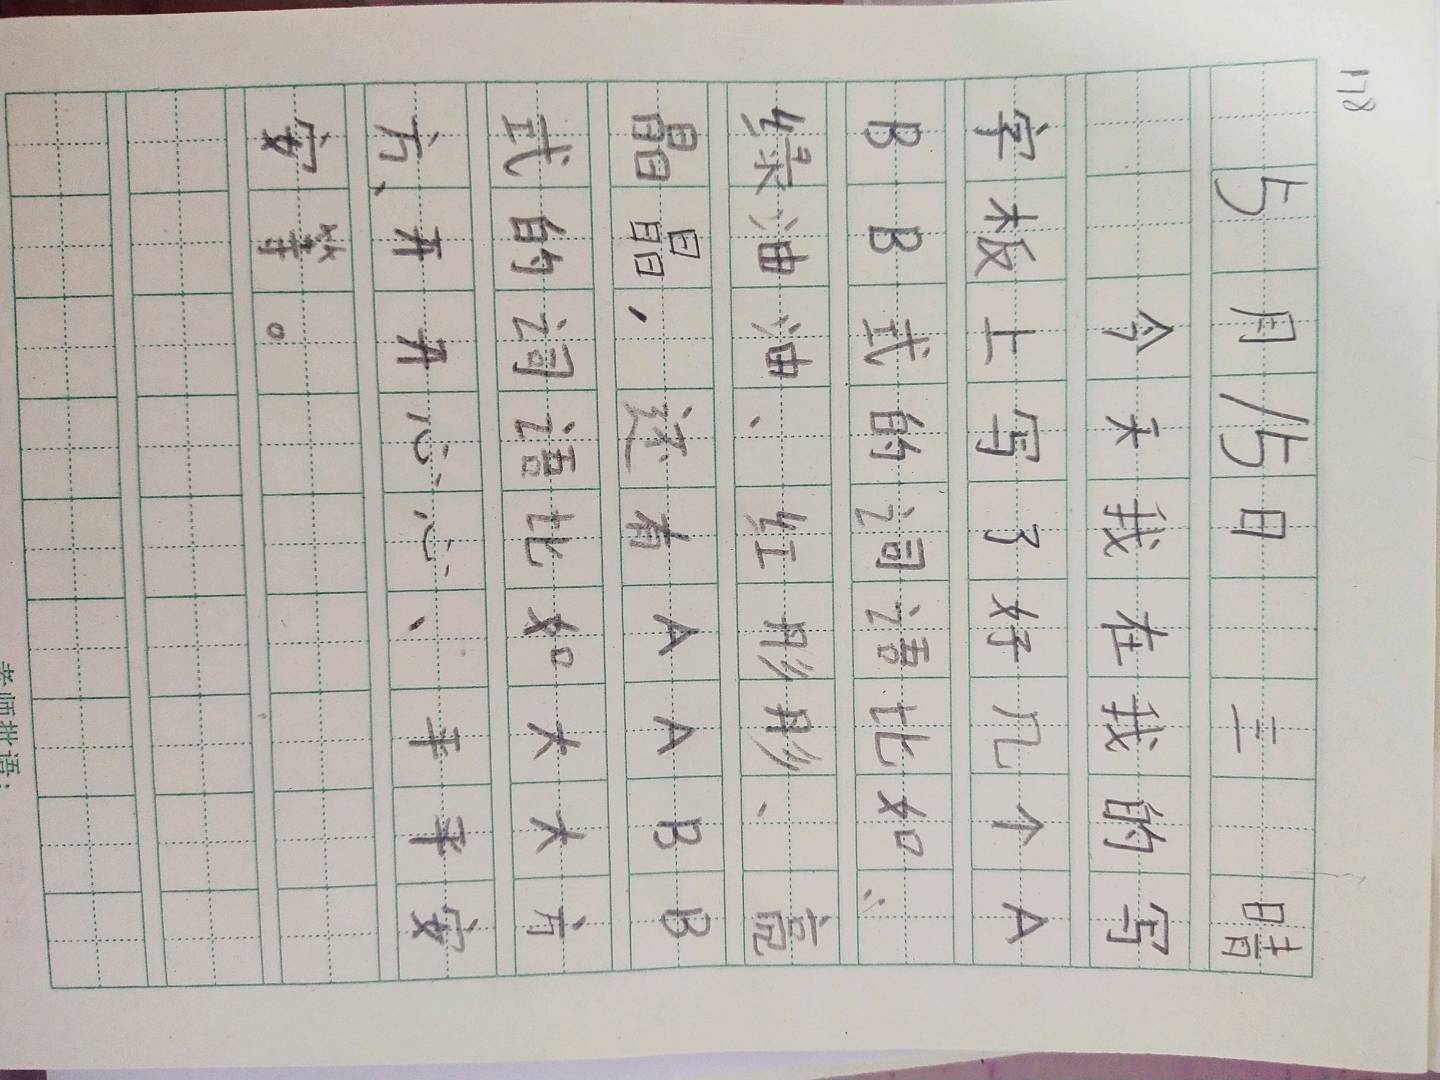 178
5月15日 二 晴
今天我在我的写
字板上写了好几个A
BB式的词语比如:
绿油油、红彤彤、亮
晶晶,还有AABB
式的词语比如大大方
方、开开心心、平平安
安等。
老师批语: